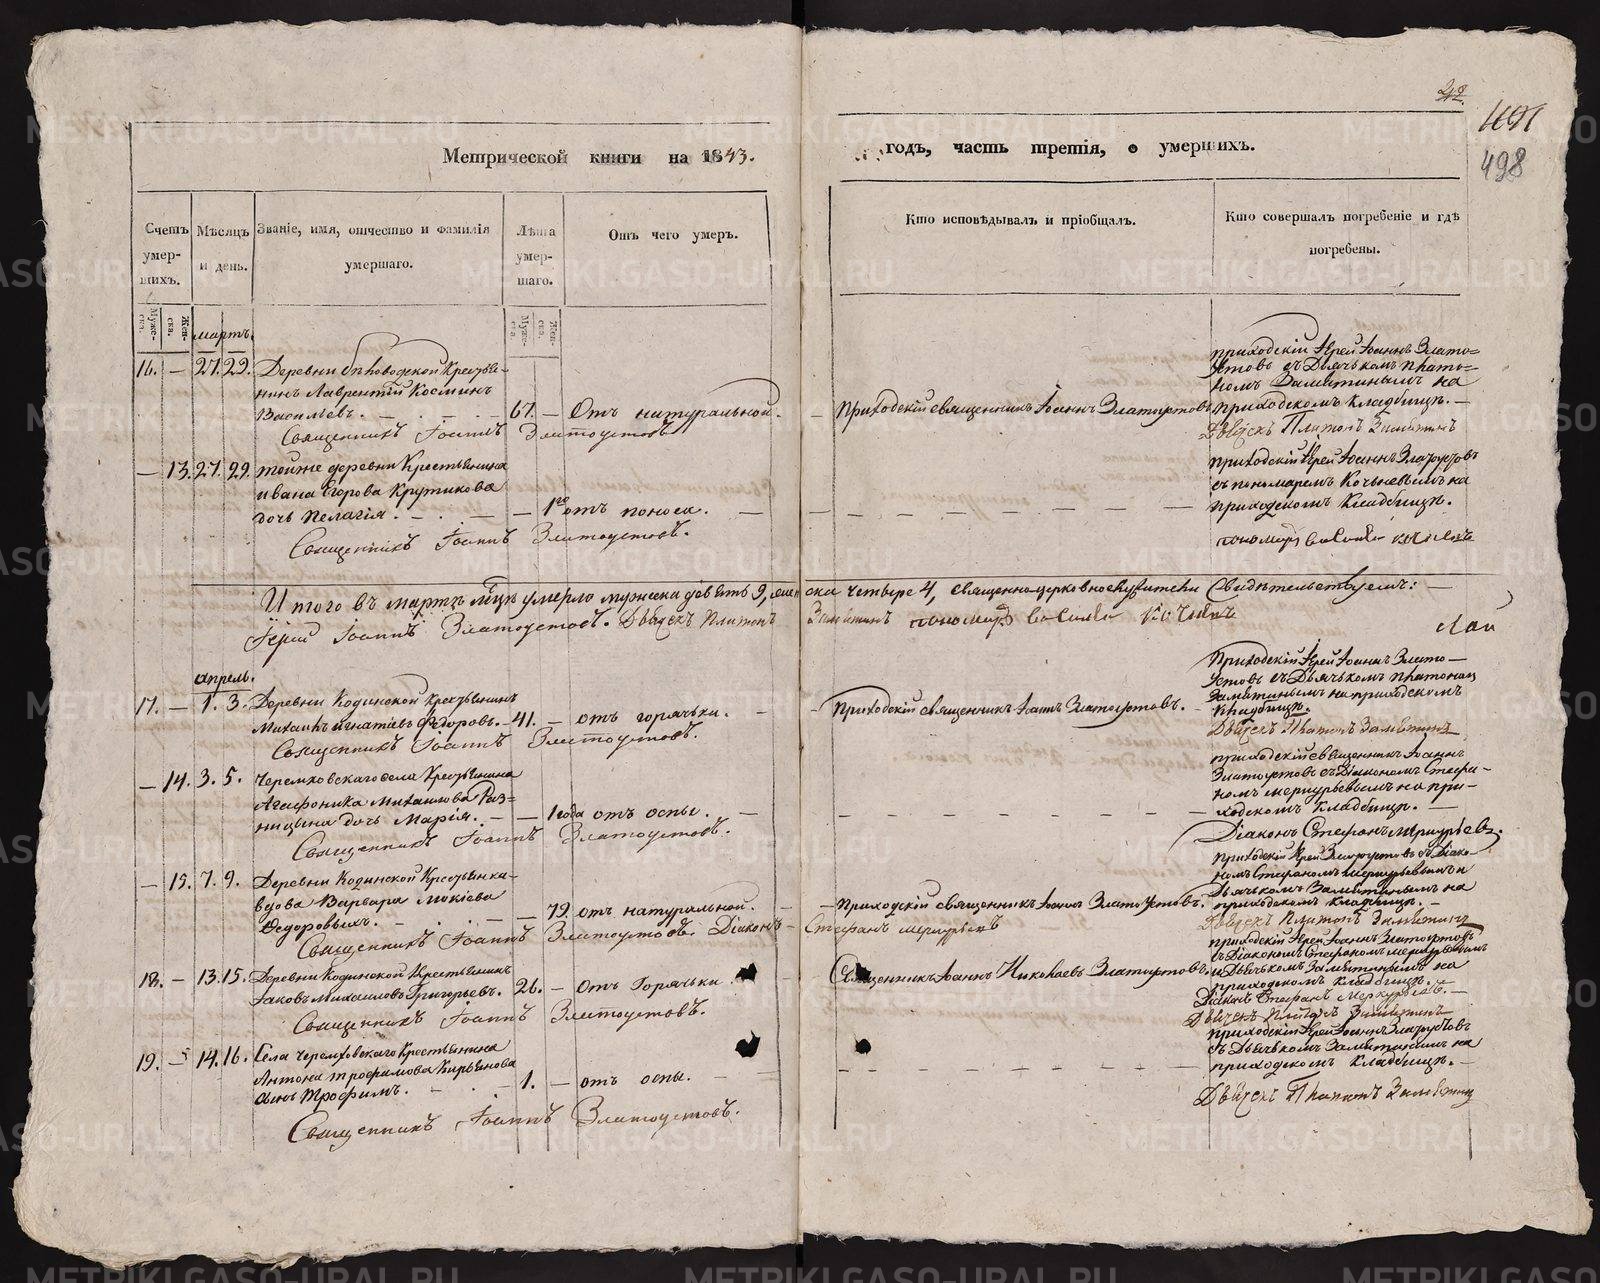 498
Метрической книги на 1843.
годъ, часть третія, о умершихъ.
Счетъ умер-шихъ.
Мѣсяцъ и день.
Званіе, имя, отчество и фамилія умершаго.
Лѣта умер-шаго.
Отъ чего умеръ.
Кто исповѣдывалъ и пріобщалъ.
Кто совершалъ погребеніе и гдѣ погребены.
Муже-ска.
Жен-ска.
Муже-ска
Жен-ска.
мартъ.
16. — 27. 29. Деревни Крестья-
нинъ Лаврентій Косминъ
Васильевъ. — 67. — Отъ натуральной.
Священникъ Іоаннъ Златоустовъ
Приходскій священникъ Іоаннъ Златоустовъ
приходскій Іерей Іоаннъ Злато-
устовъ съ Дьячькомъ Плато-
номъ Замятинымъ на
приходскомъ кладбищѣ. —
Дьячекъ Платонъ Замятинъ
— 13. 27. 29. тойже деревни Крестьянина
ивана Егорова Крутикова
дочь Пелагія. — 1го отъ поноса. —
Священникъ Іоаннъ Златоустовъ.
приходскій Іерей Іоаннъ Златоустовъ
съ пономаремъ Кочневымъ на
приходскомъ Кладбищѣ.
Итого въ мартѣ мцѣ умерло мужеска девять 9, женска четыре 4, священноцерковнослужители Свидѣтельствуемъ: —
Іерей Іоаннъ Златоустовъ. Дьячекъ Платонъ Замятинъ
апрель.
17. — 1. 3. Деревни Кодинской Крестьянинъ
Михаилъ игнатьевъ Ѳедоровъ. — 41. — отъ горячьки. —
Священникъ Іоаннъ Златоустовъ.
Приходскій священникъ Іоаннъ Златоустовъ.
Приходскій Іерей Іоаннъ Злато-
устовъ съ Дьячькомъ Платономъ
Замятинымъ на приходскомъ
кладбищѣ.
Дьячекъ Платонъ Замятинъ
— 14. 3. 5. Черемховскаго села Крестьянина
Агафоника Михаилова Раз=
ницына дочь Марія. — — 1 года отъ оспы. —
Священникъ Іоаннъ Златоустовъ.
приходскій священникъ Іоаннъ
Златоустовъ съ Діакономъ Стефа-
номъ меркурьевымъ на при-
ходскомъ кладбищѣ. —
Діаконъ Стефанъ Меркурьевъ.
— 15. 7. 9. Деревни Кодинской Крестьянка-
вдова Варвара Мокіева
Ѳедоровыхъ. — 79. отъ натуральной.
Священникъ Іоаннъ Златоустовъ. Діаконъ Стефанъ меркурьевъ
Приходскій священникъ Іоаннъ Златоустовъ.
приходскій Іерей Златоустовъ съ Діако-
номъ Стефаномъ Меркурьевымъ и
Дьячькомъ Замятинымъ на
приходскомъ кладбищѣ. —
Дьячекъ Платонъ Замятинъ
18. — 13. 15. Деревни Кодинской Крестьянинъ
Іаковъ Михаиловъ Григорьевъ. 26. — Отъ Горячьки.
Священникъ Іоаннъ Златоустовъ.
Священникъ Іоаннъ Николаевъ Златоустовъ.
приходскій Іерей Іоаннъ Златоустовъ
съ Діакономъ Стефаномъ меркурьевымъ
и Дьячькомъ Замятинымъ на
приходскомъ кладбищѣ.
Діаконъ Стефанъ Меркурьевъ. —
Дьячекъ Платонъ Замятинъ
19. — 14. 16. Села Черемховскаго Крестьянина
Антона трофимова Кирьянова
сынъ Трофимъ. — 1. — отъ оспы. —
Священникъ Іоаннъ Златоустовъ.
приходскій Іерей Іоаннъ Златоустовъ
съ Дьячькомъ Замятинымъ на
приходскомъ Кладбищѣ. —
Дьячекъ Платонъ Замятинъ
METRIKI.GASO-URAL.RU